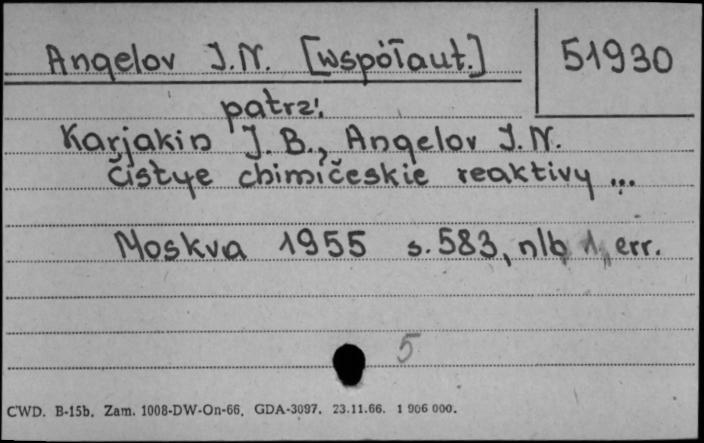 Angelov J.N. [współaut.] 51930
patrz:
Karjakin J.B., Angelov J.N.
Čistye chimičeskie reaktivy ...
Moskva 1955 s. 583, nlb 1, err.
5
CWD. B-15b. Zam. 1008-DW-On-66. GDA-3097. 23.11.66. 1 906 000.